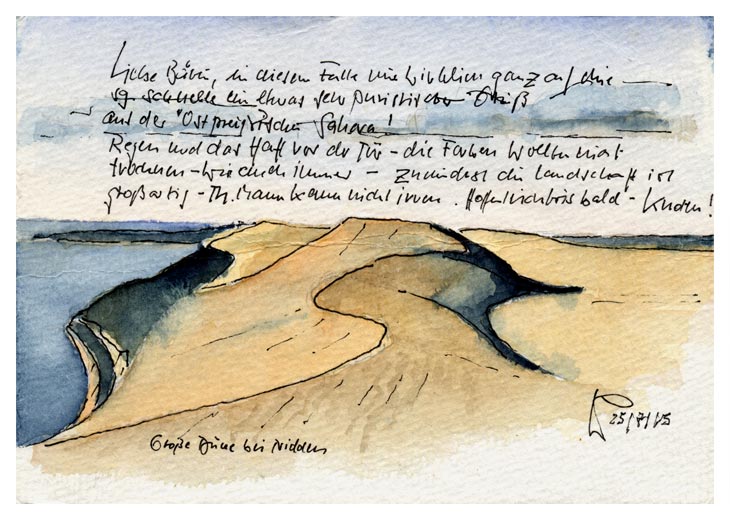 Liebe Bärbi, in diesem Falle nur wirklich ganz auf die
sg. schnelle ein etwas sehr puristischer Gruß
aus der "Ostpreußischen Sahara!
Regen und das Haff vor der Tür - die Farben wollen nicht
trocknen - wie auch immer - zumindest die Landschaft ist
großartig - Th. Mann kann nicht irren. Hoffentlich bis bald -
Große Düne bei Nidden
25/8/15